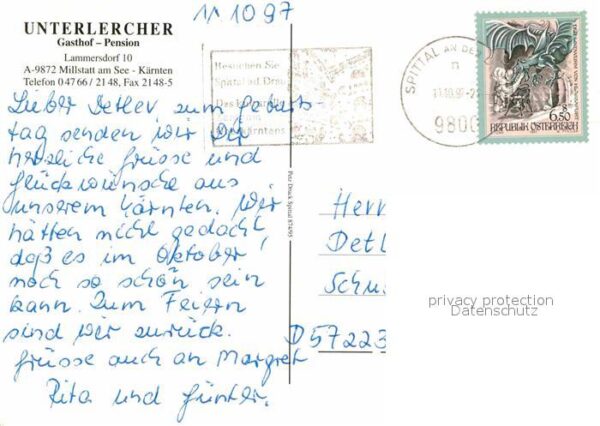 11 10 97
UNTERLERCHER
Gasthof – Pension
Lammersdorf 10
A-9872 Millstatt am See - Kärnten
Telefon 0 47 66 / 21 48, Fax 21 48-5
Lieber Detlev, zum Geburts-
tag senden wir Dir
herzliche Grüsse und
Glückwünsche aus
unserem Kärnten. Wir
hätten nicht gedacht
daß es im Oktober
noch so schön sein
kann. Zum Feiern
sind wir zurück.
Grüsse auch an Margret
Rita und Günter.
Besuchen Sie
Spittal ad Drau
SPITTAL AN DER
11.10.97-2
9800
6.50
REPUBLIK ÖSTERREICH
Petz Druck Spittal 874/95
Herr
Detl
Schu
D 57223
privacy protection
Datenschutz